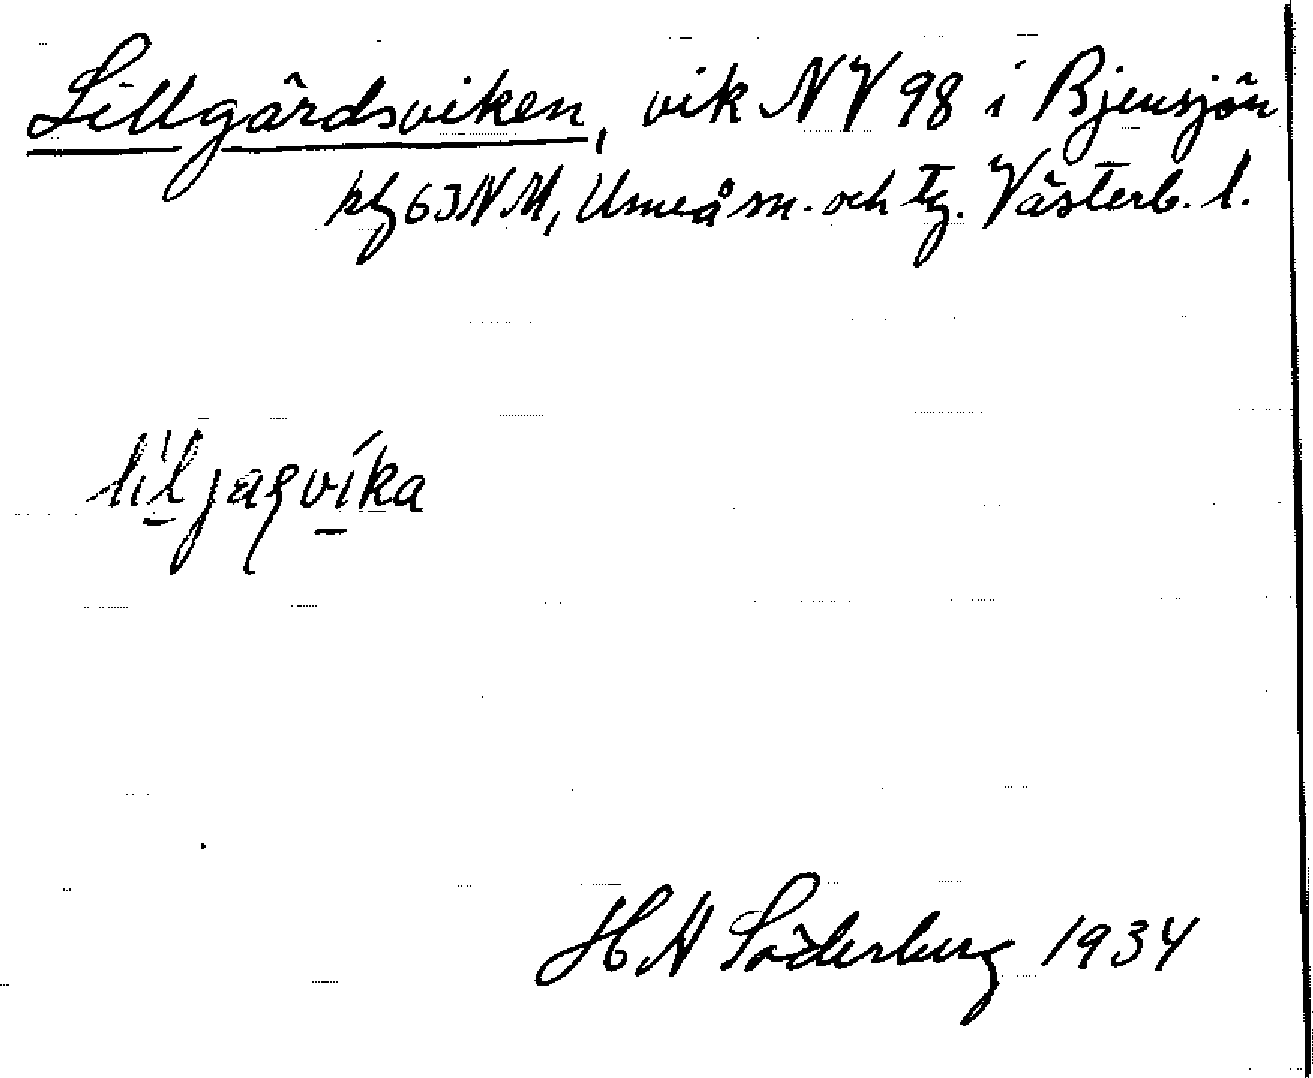 Lillgårdsviken, vik NV 98 i Bjensjön
hfg 63 NM, Umeå sn. och tg. Västerb. l.
H A Söderberg 1934